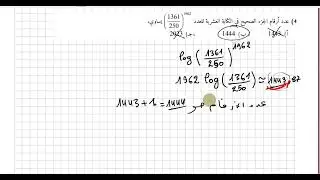 4) عدد أرقام الجزء الصحيح في الكتابة العشرية للعدد (1361/250)^1962 يساوي:
ب) 1444 ج) 2023
log(1361/250)^1962
1962 log(1361/250) ≈ 1443,87
1443+1=1444 عدد الأرقام هو